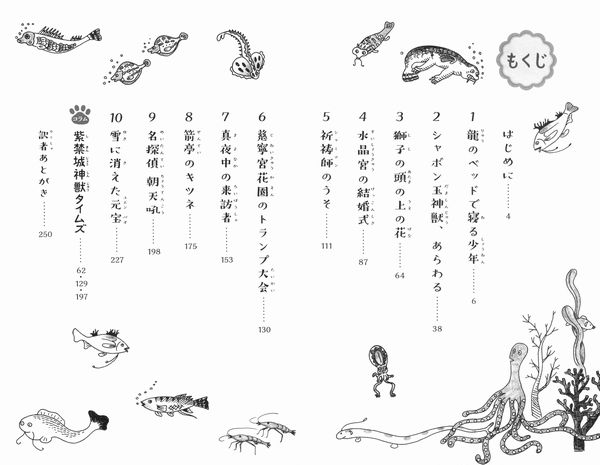 もくじ
はじめに……4
1 龍のベッドで寝る少年……6
2 シャボン玉神獣、あらわる……38
3 獅子の頭の上の花……64
4 水晶宮の結婚式……87
5 祈祷師のうそ……111
6 慈寧宮花園のトランプ大会……130
7 真夜中の来訪者……153
8 箭亭のキツネ……175
9 名探偵 朝天吼……198
10 雪に消えた元宝……227
コラム 紫禁城神獣タイムズ……62・129・197
訳者あとがき……250